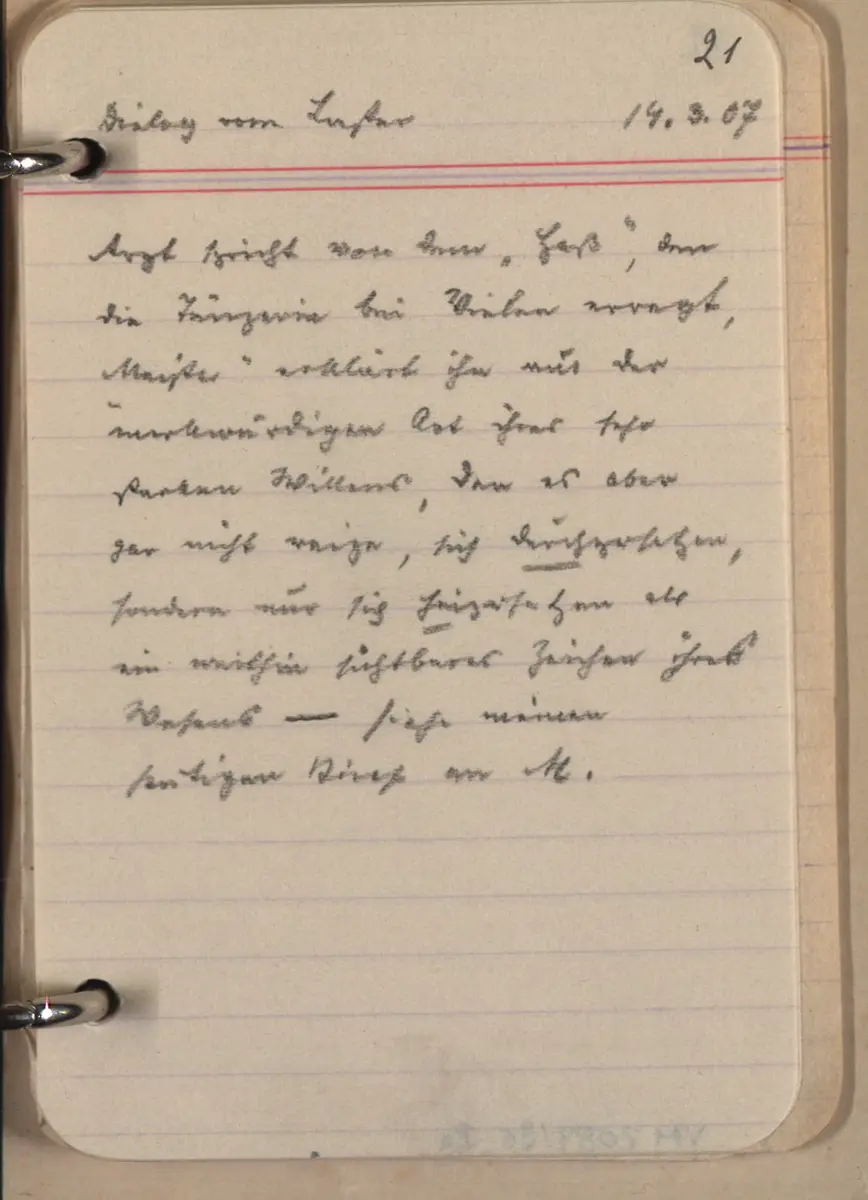 21
Dialog vom Laster 14.3.07
Arzt spricht von dem „Haß“, den
die Tänzerin bei Vielen erregt,
„Meister“ erklärt ihn aus der
merkwürdigen Art ihres sehr
starken Willens, den es aber
gar nicht reize, sich durchzusetzen,
sondern nur sich hinzusetzen als
ein weithin sichtbares Zeichen ihres
Wesens — siehe meinen
heutigen Brief an M.